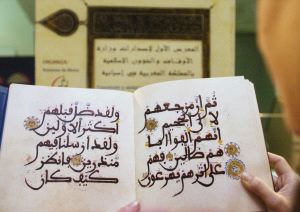 المعرض الأول لإصدارات وزارة
الأوقاف والشؤون الإسلامية
بالمملكة المغربية في إسبانيا
ثم إن مرجعهم
لإلى الجحيم
إنهم ألفوا ءاباء
هم ضالين فهم
على ءاثرهم يهرعون
ولقد ضل قبلهم
أكثر الأولين
ولقد أرسلنا فيهم
منذرين فانظر
كيف كان